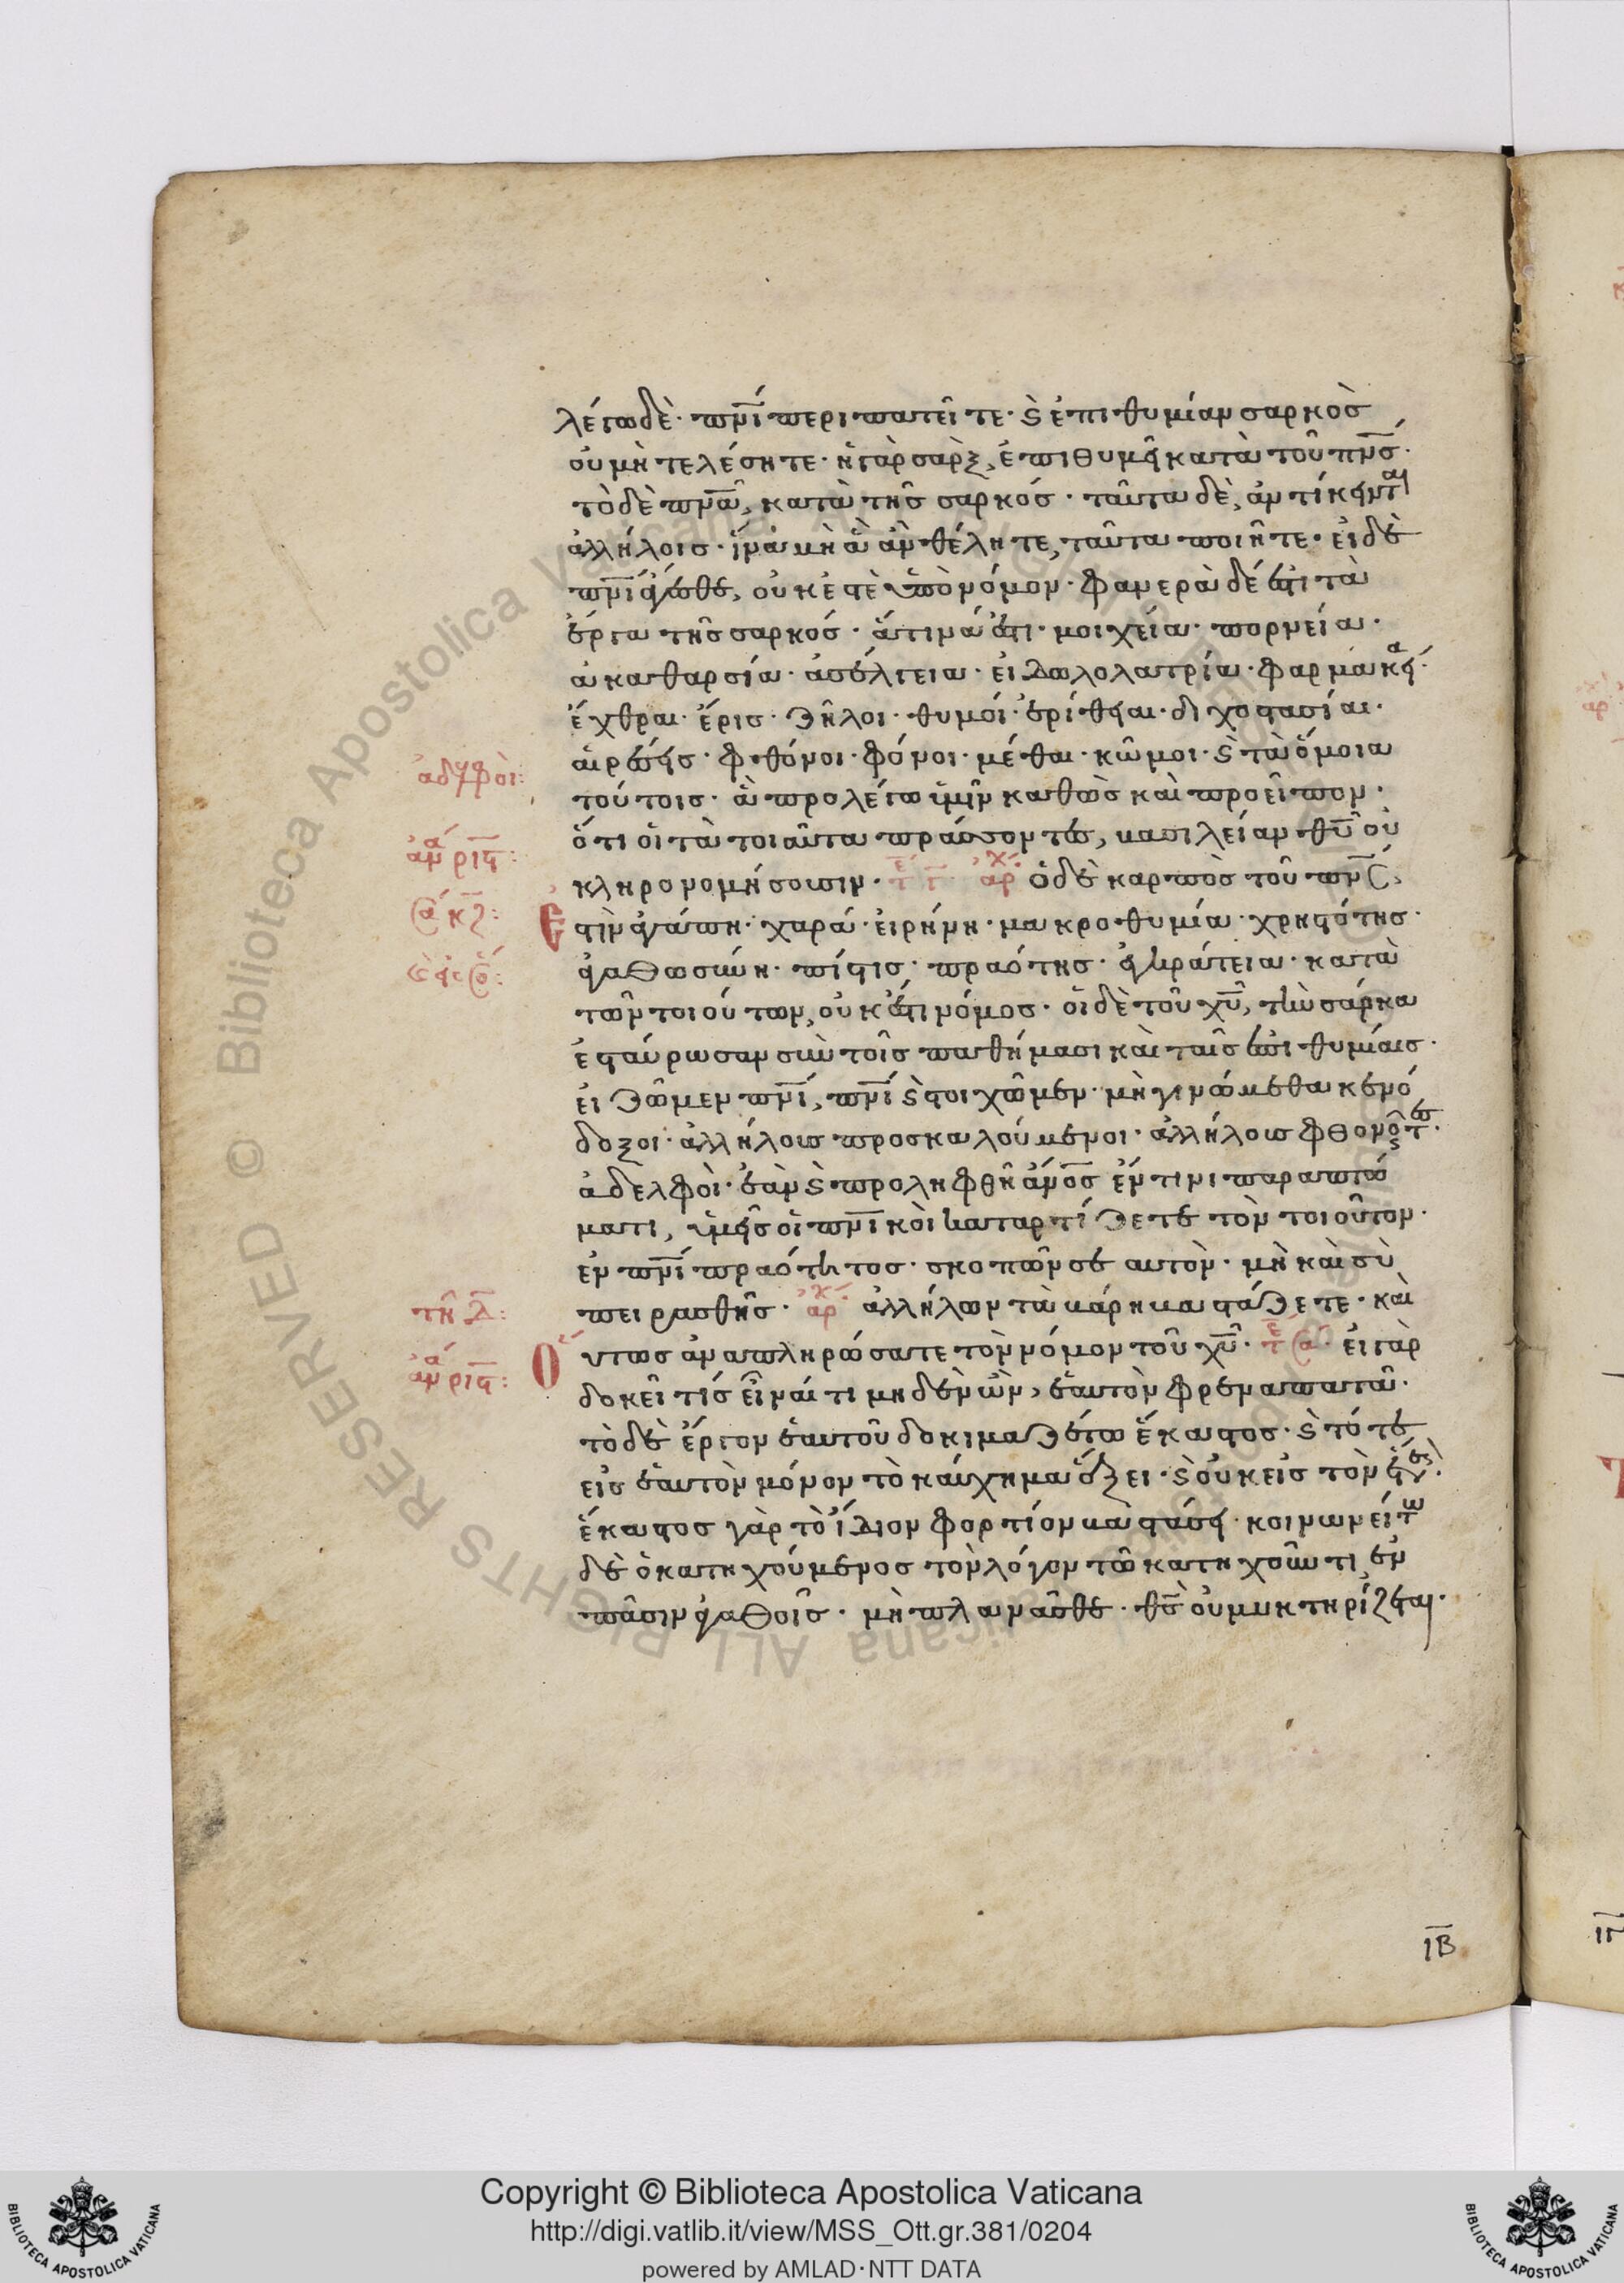 λέγω δὲ· πνι περιπατεῖτε· ϛ ἐπιθυμίαν σαρκὸσ
οὐ μὴ τελέσητε· ἡ γὰρ σὰρξ, ἐπιθυμεῖ κατὰ τοῦ πνσ·
τὸ δὲ πνα, κατὰ τῆσ σαρκόσ· ταῦτα δὲ, ἀντίκειται
ἀλλήλοισ· ἵνα μὴ ἃ ἂν θέλητε, ταῦτα ποιῆτε· εἰ δὲ
πνι ἄγεσθε, οὐκ ἐστὲ ὑπὸ νόμον· φανερὰ δέ ἐστι τὰ
ἔργα τῆσ σαρκόσ· ἅτινά ἐστι· μοιχεία· πορνεία·
ἀκαθαρσία· ἀσέλγεια· εἰδωλολατρία· φαρμακεία·
ἔχθραι· ἔρισ· ζῆλοι· θυμοί· ἐρίθειαι· διχοστασίαι·
αἱρέσεισ· φθόνοι· φόνοι· μέθαι· κῶμοι· ϛ τὰ ὅμοια
τούτοισ· ἃ προλέγω ὑμῖν καθὼσ καὶ προεῖπον·
ὅτι οἱ τὰ τοιαῦτα πράσσοντεσ, βασιλείαν θυ οὐ
κληρονομήσουσιν· ὁ δὲ καρπὸσ τοῦ πνσ,
ἐστὶν ἀγάπη· χαρά· εἰρήνη· μακροθυμία· χρηστότησ·
ἀγαθωσύνη· πίστισ· πραότησ· ἐγκράτεια· κατὰ
τῶν τοιούτων, οὐκ ἔστι νόμοσ· οἱ δὲ τοῦ χυ, τὴν σάρκα
ἐσταύρωσαν σὺν τοῖσ παθήμασι καὶ ταῖσ ἐπιθυμίαισ·
εἰ ζῶμεν πνι, πνι ϛ στοιχῶμεν· μὴ γινώμεθα κενό
δοξοι· ἀλλήλουσ προσκαλούμενοι· ἀλλήλοισ φθονοῦντεσ·
ἀδελφοὶ· ἐὰν ϛ προληφθῆ ἄνοσ ἔν τινι παραπτώ
ματι, ὑμεῖσ οἱ πνικοὶ καταρτίζετε τὸν τοιοῦτον·
ἐν πνι πραότητοσ· σκοπῶν σεαυτὸν· μὴ καὶ σὺ
πειρασθῆσ· ἀρχ ἀλλήλων τὰ βάρη βαστάζετε· καὶ
οὕτωσ ἀναπληρώσατε τὸν νόμον τοῦ χυ· εἰ γὰρ
δοκεῖ τίσ εἶναί τι μηδὲν ὢν, ἑαυτὸν φρεναπατᾶ·
τὸ δὲ ἔργον ἑαυτοῦ δοκιμαζέτω ἕκαστοσ· ϛ τότε
εἰσ ἑαυτὸν μόνον τὸ καύχημα ἕξει· ϛ οὐκ εἰσ τὸν ἕτερον·
ἕκαστοσ γὰρ τὸ ἴδιον φορτίον βαστάσει· κοινωνείτω
δὲ ὁ κατηχούμενοσ τὸν λόγον τῶ κατηχοῦντι ἐν
πᾶσιν ἀγαθοῖσ· μὴ πλανᾶσθε· θσ οὐ μυκτηρίζεται·
ἀδελφοὶ:
τῆ λ:
ΙΒ
Copyright © Biblioteca Apostolica Vaticana
http://digi.vatlib.it/view/MSS_Ott.gr.381/0204
powered by AMLAD·NTT DATA